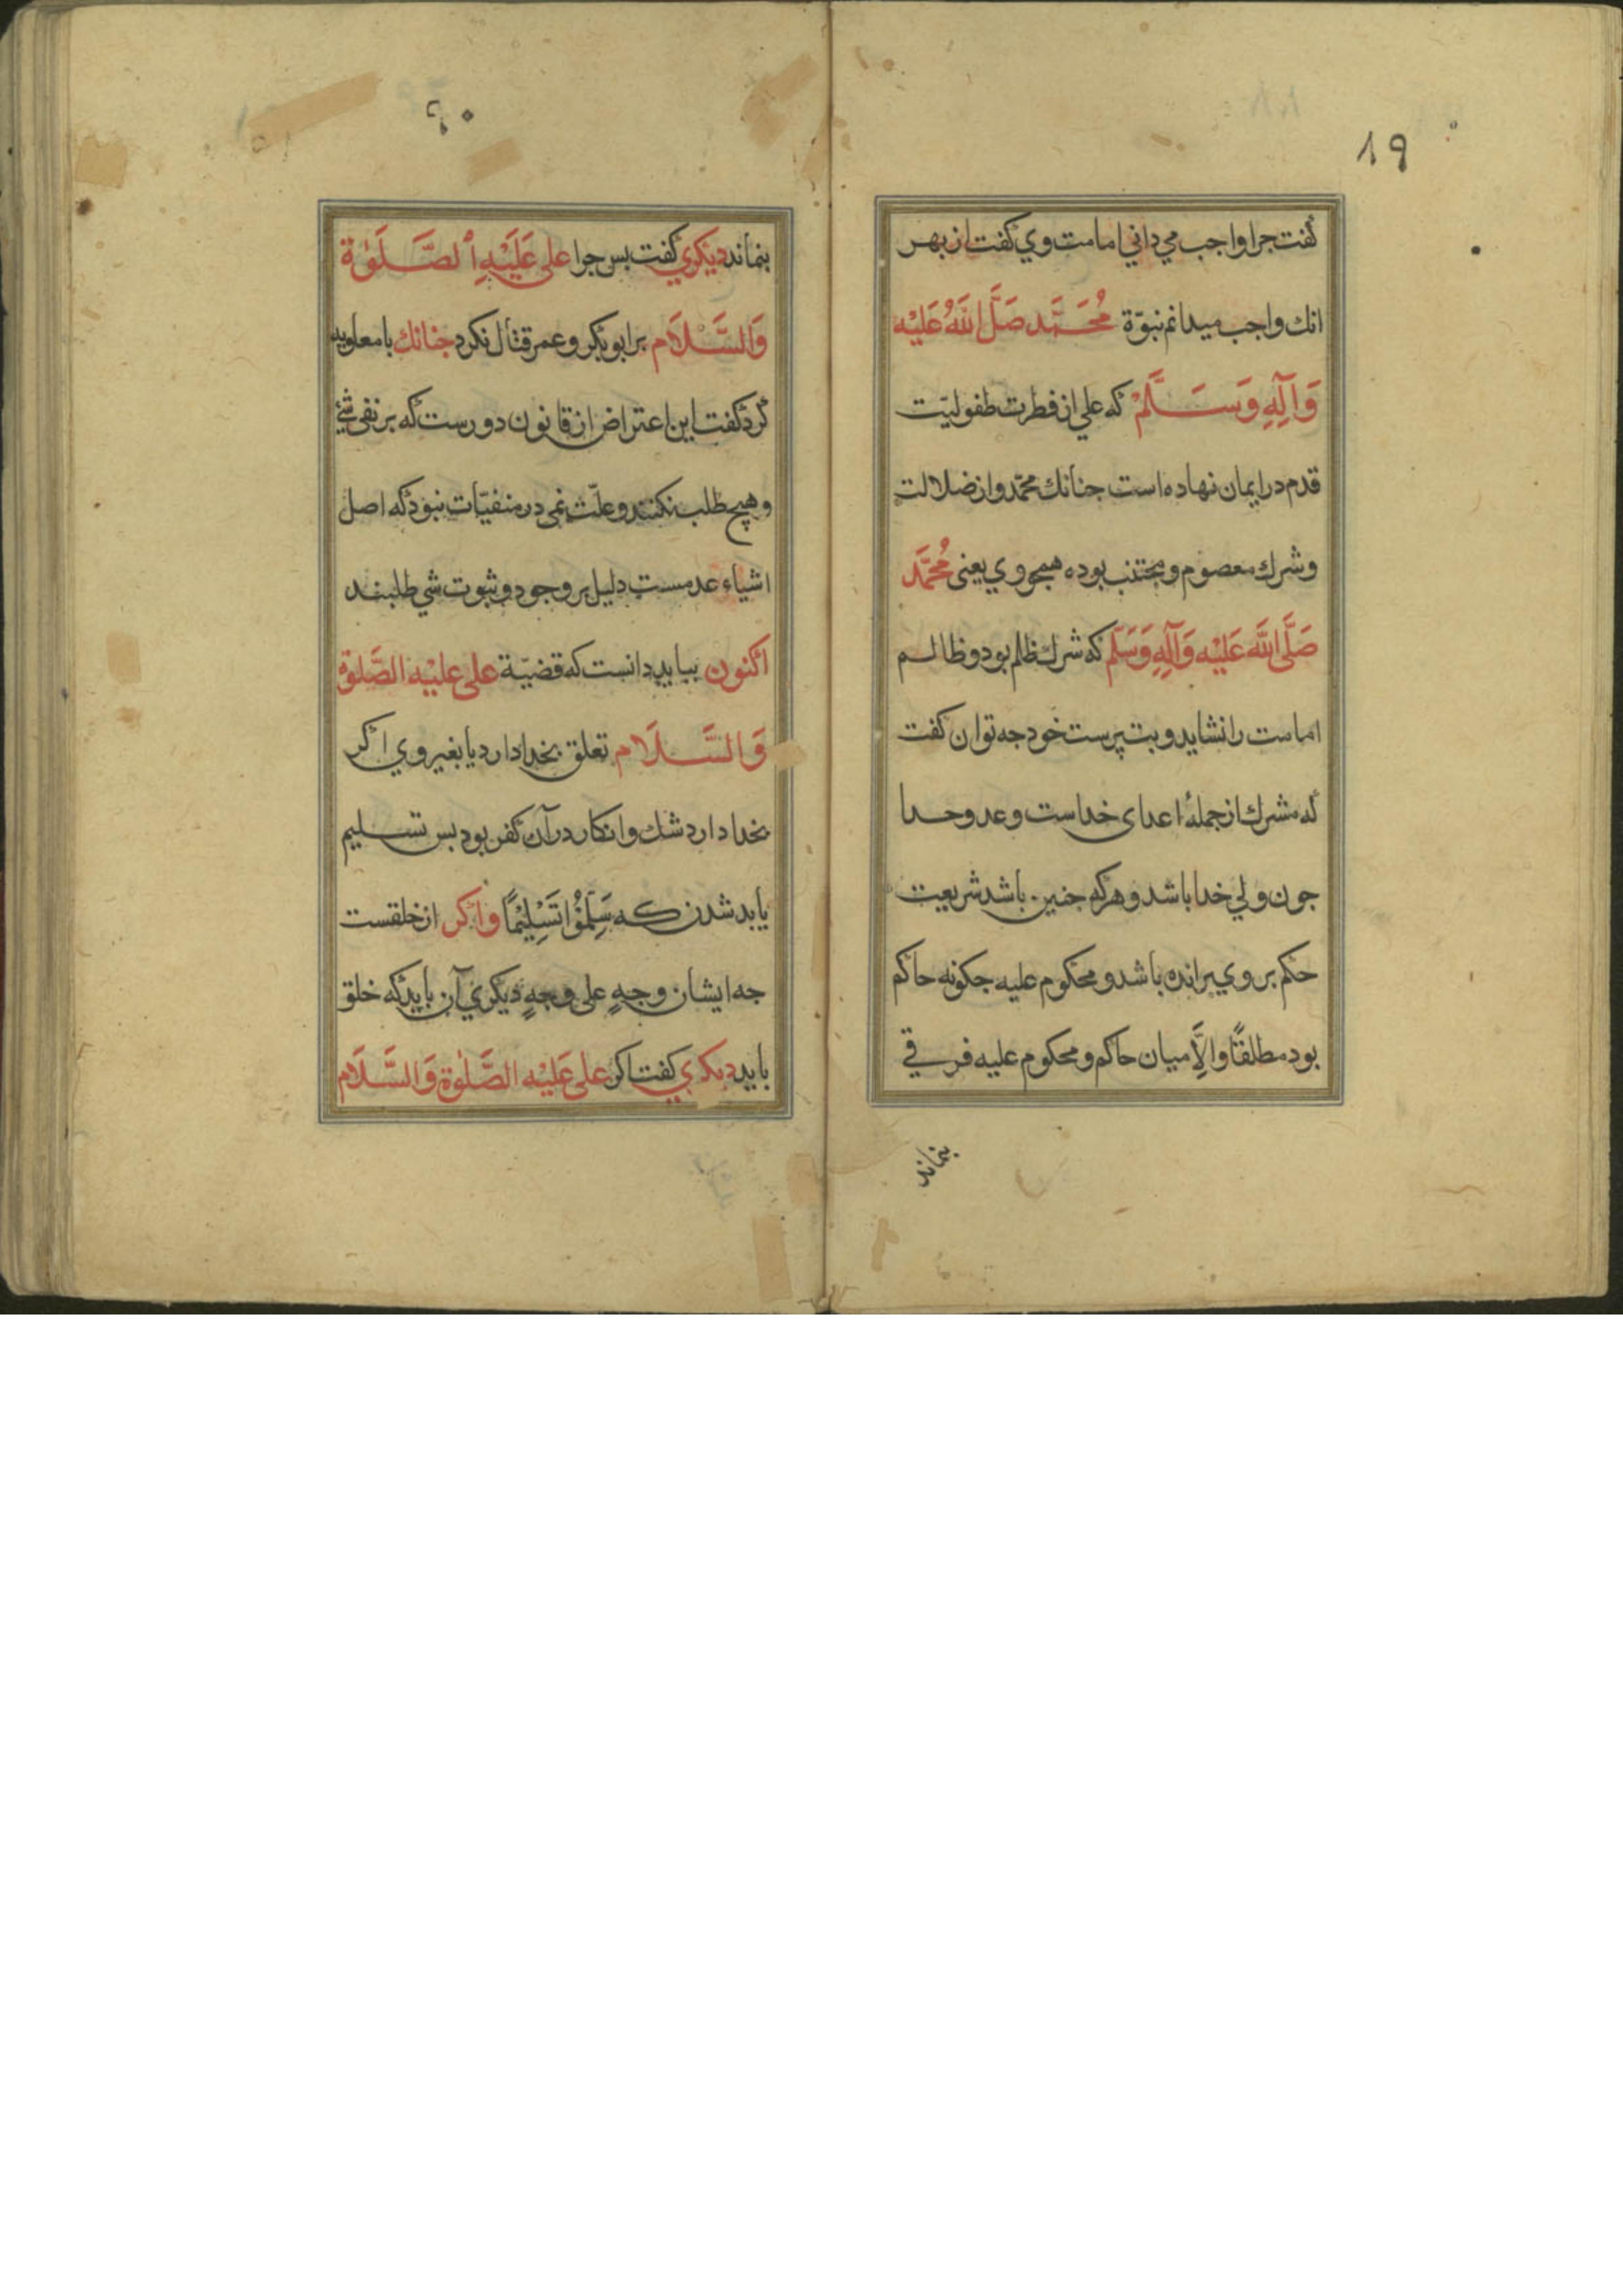 ١٩
كفت جرا واجب مي داني امامت وي كفت از بهر
انك واجب ميدانم نبوّة مُحَمَّد صَلَّى اللَّهُ عَلَيْهِ
وَآلِهِ وَسَلَّمْ كه علي از فطرت طفوليّت
قدم در ايمان نهاده است جنانك محمّد و از ضلالت
وشرك معصوم و مجتنب بوده همجو وي يعنى مُحَمَّد
صَلَّى اللَّه عَلَيْه وَآلِهِ وَسَلَّم كه شرك ظلم بود و ظالم
امامت را نشايد و بت پرست خود جه توان كفت
كه مشرك از جملهٔ اعداى خداست و عدو خدا
جون ولي خدا باشد و هركه جنين باشد شريعت
حكم بر وي برانده باشد و محكوم عليه جكونه حاكم
بود مطلقًا والَّا ميان حاكم و محكوم عليه فرقي
بنماند
٢٠
بنماند ديكري كفت بس جرا على عَلَيْهِ ٱلصَّلَوٰة
وَالسَّلَام برابو بكر و عمر قتال نكرد جنانك با معاويه
كرد كفت اين اعتراض از قانون دورست كه بر نفى شئ
وهيچ طلب نكنند و علّت نمى در منفيّات نبود كه اصل
اشياء عدمست دليل بر وجود و ثبوت شي طلبند
اكنون ببايد دانست كه قضيّة على عليْه الصَّلوة
وَالسَّلَام تعلق بخدا دارد يا بغير وي اكر
بخدا دارد شك و انكار در آن كفر بود بس تسليم
بايد شدن كه سَلِّمُوا تَسْلِيْمًا واكر از خلقست
جه ايشان وجهٍ على وجهٍ ديكري آن بايد كه خلق
بايد ديكري كفت اكر على عَلَيْه الصَّلوٰة وَالسَّلَام